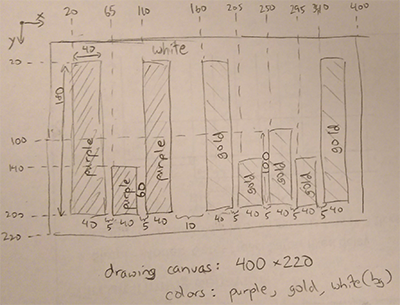 20 65 110 160 205 250 295 340 400
x
y
white
20
40
180
purple
purple
60
purple
gold
gold
100
gold
gold
gold
100
140
200
220
40 5 40 5 40 10 40 5 40 5 40 5 40 5 40
drawing canvas: 400 × 220
colors: purple, gold, white (bg)